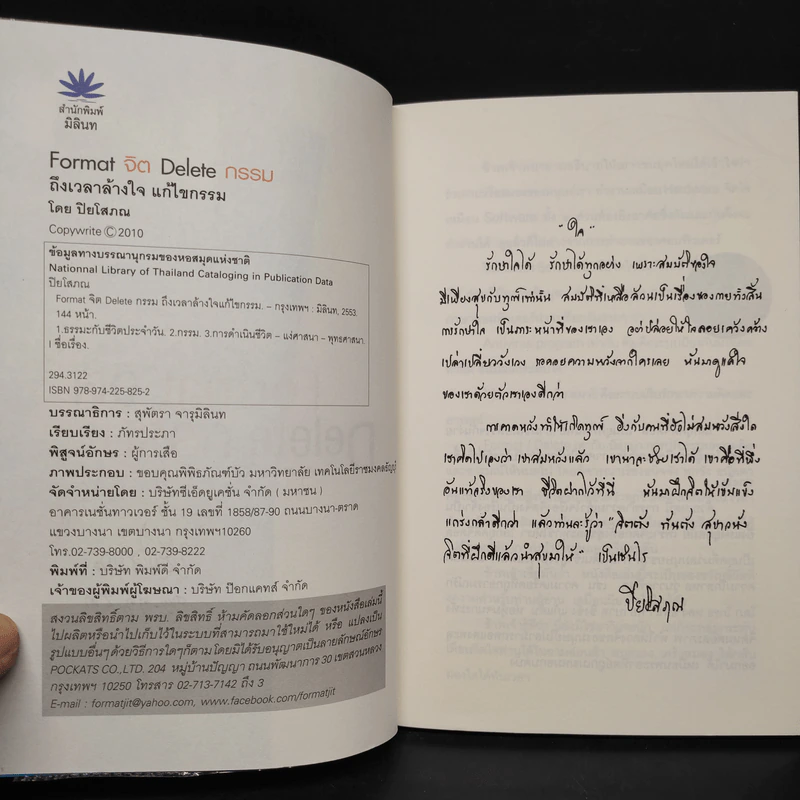 สำนักพิมพ์
มิลินท
Format จิต Delete กรรม
ถึงเวลาล้างใจ แก้ไขกรรม
โดย ปิยโสภณ
Copywrite © 2010
ข้อมูลทางบรรณานุกรมของหอสมุดแห่งชาติ
Nationnal Library of Thailand Cataloging in Publication Data
ปิยโสภณ
Format จิต Delete กรรม ถึงเวลาล้างใจแก้ไขกรรม. – กรุงเทพฯ : มิลินท, 2553.
144 หน้า.
1.ธรรมะกับชีวิตประจำวัน. 2.กรรม. 3.การดำเนินชีวิต – แง่ศาสนา – พุทธศาสนา.
I ชื่อเรื่อง.
294.3122
ISBN 978-974-225-825-2
บรรณาธิการ : สุพัตรา จารุมิลินท
เรียบเรียง : ภัทรประภา
พิสูจน์อักษร : ผู้การเสือ
ภาพประกอบ : ขอบคุณพิพิธภัณฑ์บัว มหาวิทยาลัย เทคโนโลยีราชมงคลธัญบุรี
จัดจำหน่ายโดย : บริษัทซีเอ็ดยูเคชั่น จำกัด ( มหาชน )
อาคารเนชั่นทาวเวอร์ ชั้น 19 เลขที่ 1858/87-90 ถนนบางนา-ตราด
แขวงบางนา เขตบางนา กรุงเทพฯ10260
โทร.02-739-8000 , 02-739-8222
พิมพ์ที่ : บริษัท พิมพ์ดี จำกัด
เจ้าของผู้พิมพ์ผู้โฆษณา : บริษัท ป๊อกแคทส์ จำกัด
สงวนลิขสิทธิ์ตาม พรบ. ลิขสิทธิ์ ห้ามคัดลอกส่วนใดๆ ของหนังสือเล่มนี้
ไปผลิตหรือนำไปเก็บไว้ในระบบที่สามารถมาใช้ใหม่ได้ หรือ แปลงเป็น
รูปแบบอื่นๆด้วยวิธีการใดๆก็ตามโดยมิได้รับอนุญาตเป็นลายลักษณ์อักษร
POCKATS CO.,LTD. 204 หมู่บ้านปัญญา ถนนพัฒนาการ 30 เขตสวนหลวง
กรุงเทพฯ 10250 โทรสาร 02-713-7142 ถึง 3
E-mail : formatjit@yahoo.com, www.facebook.com/formatjit
"ใจ"
รักษาใจได้ รักษาได้ทุกอย่าง เพราะสมบัติของใจ
มีเพียงสุขกับทุกข์เท่านั้น สมบัติที่เหลือล้วนเป็นเรื่องของกายทั้งสิ้น
การรักษาใจ เป็นภาระหน้าที่ของเราเอง อย่าปล่อยให้ใจลอยเคว้งคว้าง
เปล่าเปลี่ยววังเวง รอคอยความหวังจากใครเลย หันมาดูแลใจ
ของเราด้วยตัวเราเองดีกว่า
การคาดหวังทำให้เกิดทุกข์ ยิ่งกับคนที่ยังไม่สมหวังสิ่งใด
เราคิดไปเองว่า เขาสมหวังแล้ว เขาน่าจะช่วยเราได้ เขาคือที่พึ่ง
อันแท้จริงของเรา ชีวิตฝากไว้ที่นี่ หันมาฝึกจิตให้เข้มแข็ง
แกร่งกล้าดีกว่า แล้วท่านจะรู้ว่า "จิตตัง ทันตัง สุขาวหัง
จิตที่ฝึกดีแล้วนำสุขมาให้" เป็นเช่นไร
ปิยโสภณ